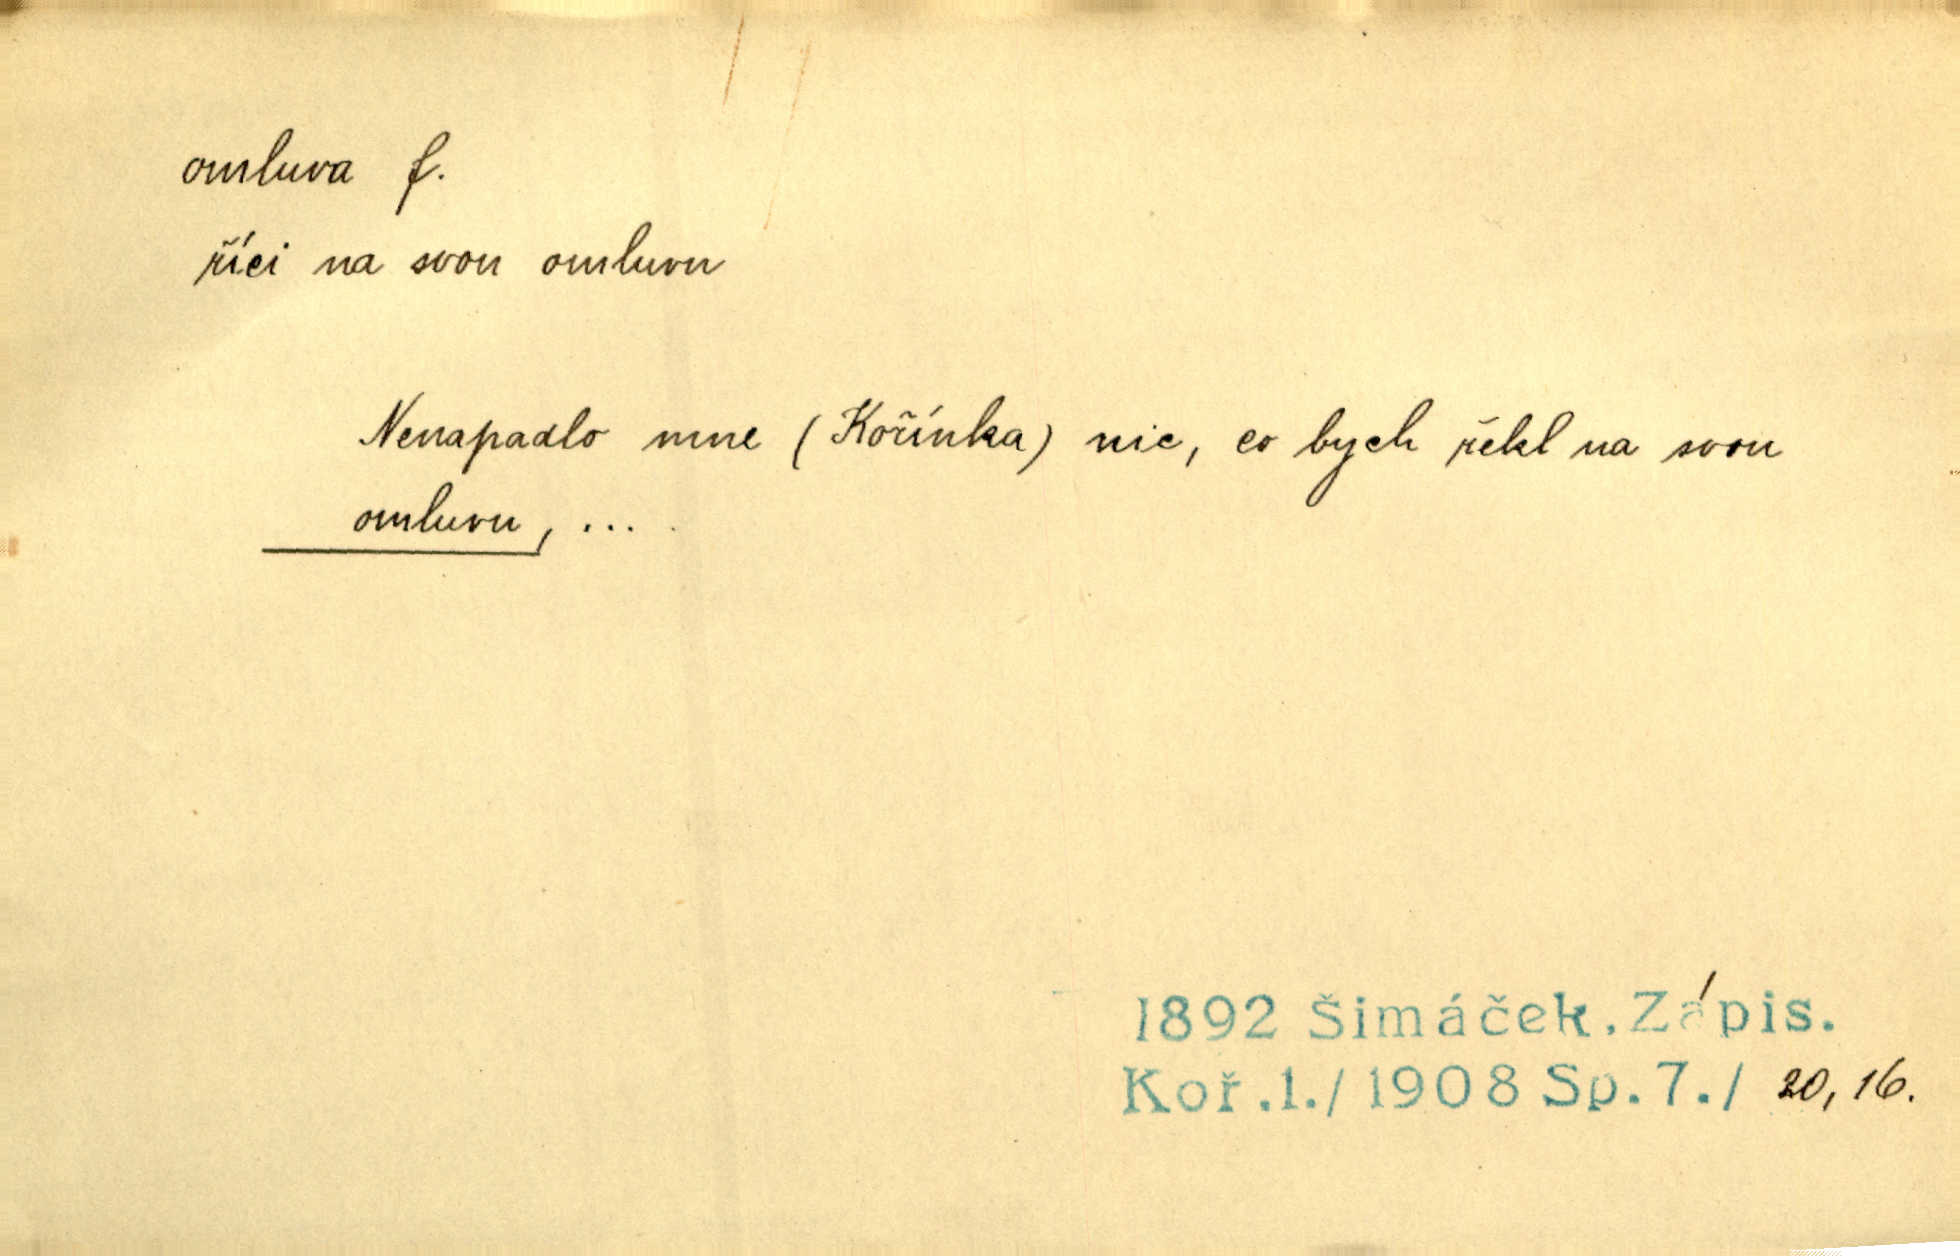 omluva f.
říci na svou omluvu
Nenapadlo mne (Kořínka) nic, co bych řekl na svou
omluvu, ...
1892 Šimáček. Zápis.
Koř.1./1908 Sp.7./ 20, 16.